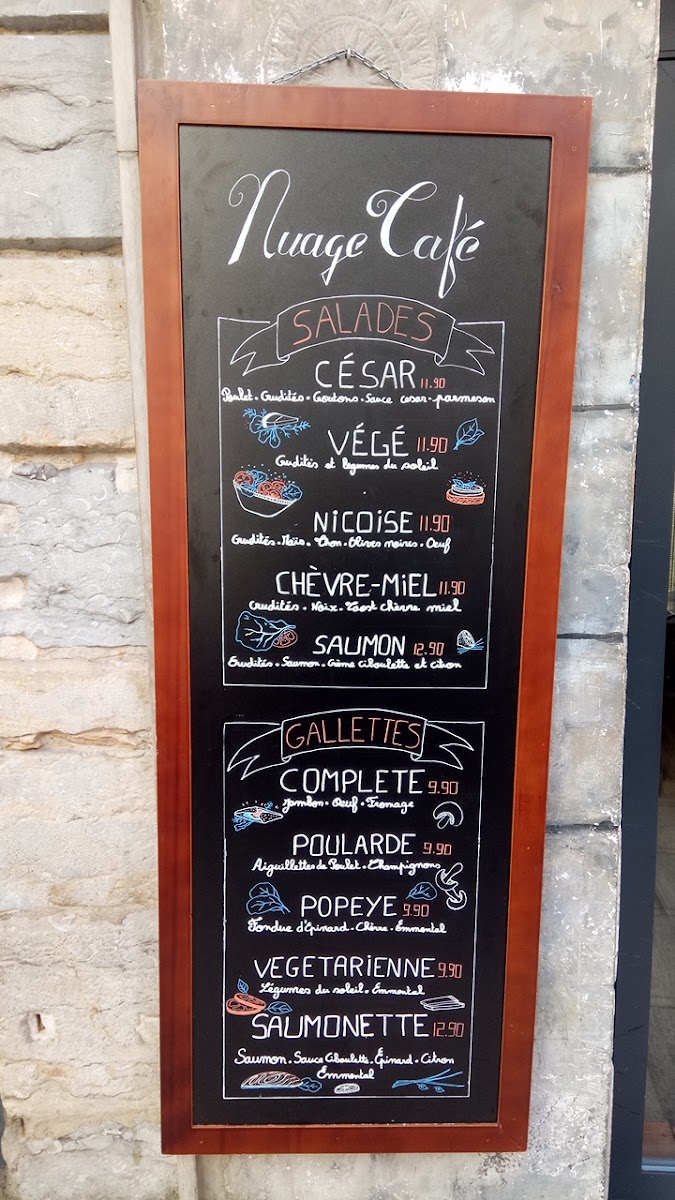 Nuage Café
SALADES
CÉSAR 11.90
Poulet - Crudités - Croutons - Sauce cesar - parmesan
VÉGÉ 11.90
Crudités et légumes du soleil
NICOISE 11.90
Crudités - Maïs - Thon - Olives noires - Oeuf
CHÈVRE-MIEL 11.90
Crudités - Noix - Toast chèvre miel
SAUMON 12.90
Crudités - Saumon - Crème ciboulette et citron
GALLETTES
COMPLETE 9.90
Jambon - Oeuf - Fromage
POULARDE 9.90
Aiguillettes de Poulet - Champignons
POPEYE 9.90
Fondue d'Épinard - Chèvre - Emmental
VEGETARIENNE 9.90
Légumes du soleil - Emmental
SAUMONETTE 12.90
Saumon - Sauce Ciboulette - Épinard - Citron
Emmental